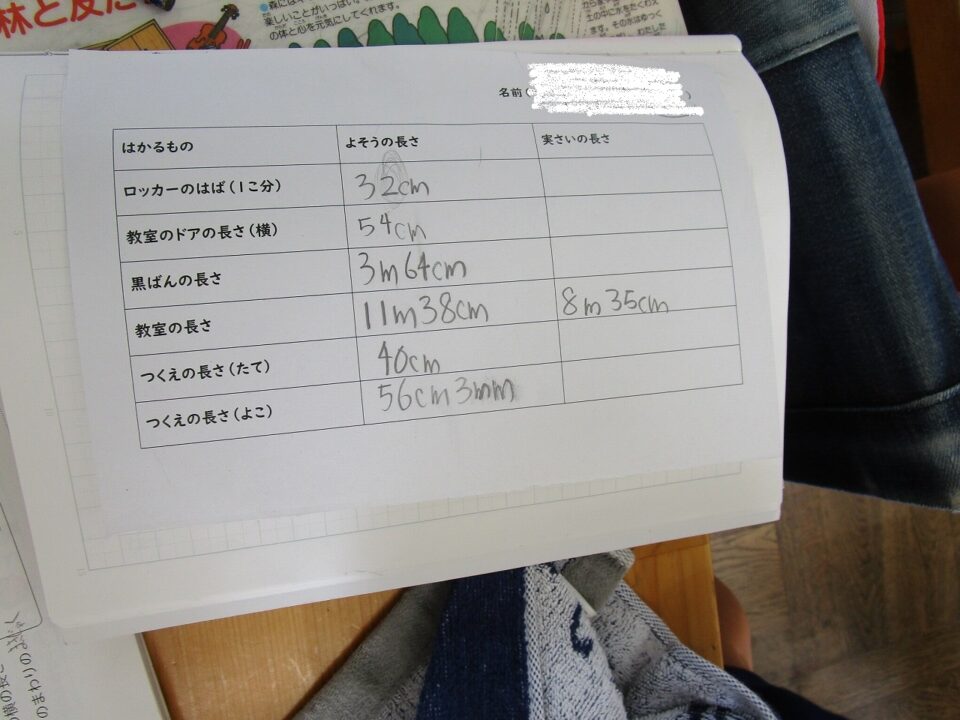 林と友だ
●森には
楽しいことがいっぱい。
の体と心を元気にしてくれます。
土の中に水をたくわえ
ます。その水はゆっく
名前(
はかるもの よそうの長さ 実さいの長さ
ロッカーのはば(1こ分) 32cm
教室のドアの長さ(横) 54cm
黒ばんの長さ 3m64cm
教室の長さ 11m38cm 8m35cm
つくえの長さ(たて) 40cm
つくえの長さ(よこ) 56cm3mm
の横の長さ
のまわりの